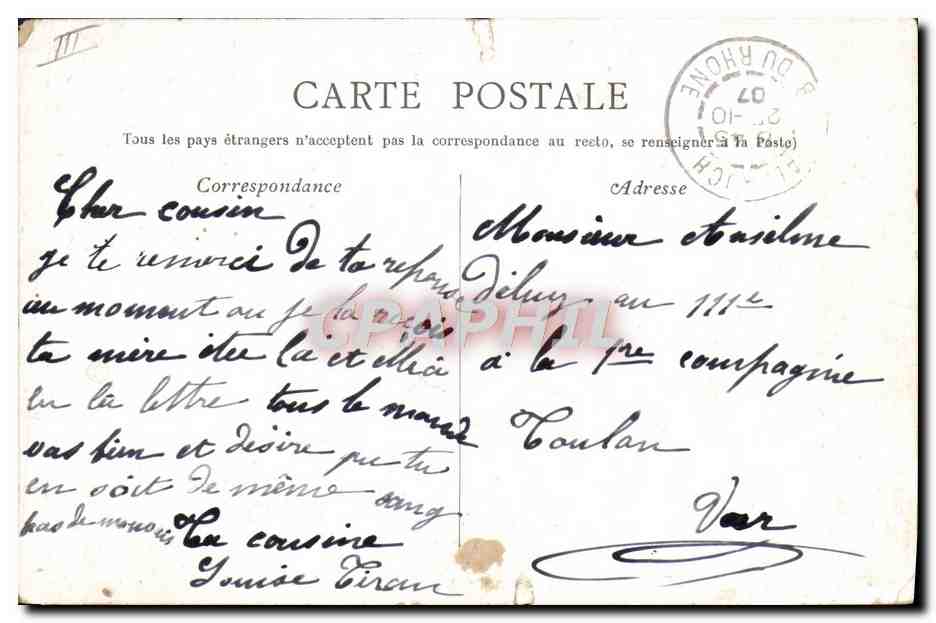 III
CARTE POSTALE
Tous les pays étrangers n'acceptent pas la correspondance au recto, se renseigner à la Poste)
Correspondance
Cher cousin
je te remerci de ta reponse
au moment ou je la reçois
ta mère etee la et ellea
lu la lettre tous le monde
vas bien et désire que tu
en soit de même
Ta cousine
Louise Tiran
Adresse
Monsieur Anselme
au 111e
à la 1re compagnie
Toulon
Var
B DU RHONE
07
-10
CPAPHIL